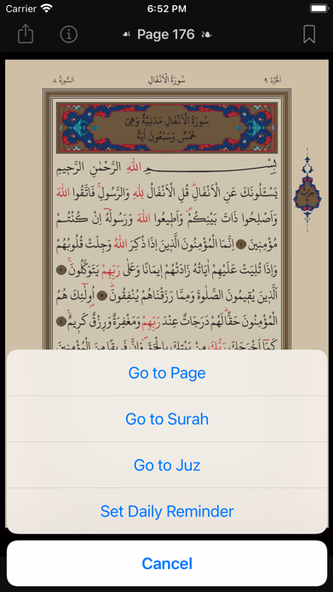 Carrier 6:52 PM
Page 176
الجزء ٩ سورة الأنفال السورة ٨
سورة الأنفال مدنية وهي
خمس وسبعون آية
بسم الله الرحمن الرحيم
يسئلونك عن الأنفال قل الأنفال لله والرسول فاتقوا الله
وأصلحوا ذات بينكم وأطيعوا الله ورسوله إن كنتم
مؤمنين ١ إنما المؤمنون الذين إذا ذكر الله وجلت قلوبهم
وإذا تليت عليهم آياته زادتهم إيمانا وعلى ربهم يتوكلون ٢
الذين يقيمون الصلوة ومما رزقناهم ينفقون ٣ أولئك هم
المؤمنون حقا لهم درجات عند ربهم ومغفرة ورزق كريم ٤
كما أخرجك ربك من بيتك بالحق وإن فريقا من المؤمنين
Go to Page
Go to Surah
Go to Juz
Set Daily Reminder
Cancel